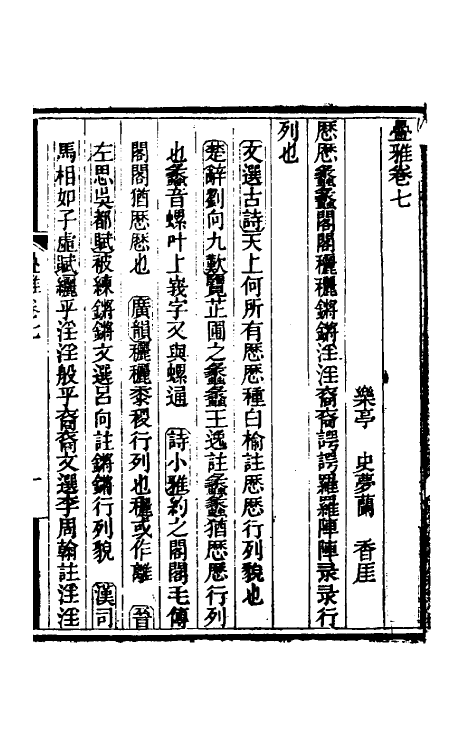 疊雅卷七
樂亭 史夢蘭 香厓
歷歷蠡蠡閣閣穲穲鏘鏘淫淫裔裔諤諤羅羅陣陣录录行
列也
文選古詩天上何所有歷歷種白榆註歷歷行列貌也
楚辭劉向九歎覽芷圃之蠡蠡王逸註蠡蠡猶歷歷行列
也蠡音螺叶上峩字又與螺通 詩小雅約之閣閣毛傳
閣閣猶歷歷也 廣韻穲穲黍稷行列也穲或作離 晉
左思吳都賦被練鏘鏘文選呂向註鏘鏘行列貌 漢司
馬相如子虛賦纚乎淫淫般乎裔裔文選李周翰註淫淫
疊雅卷七
一